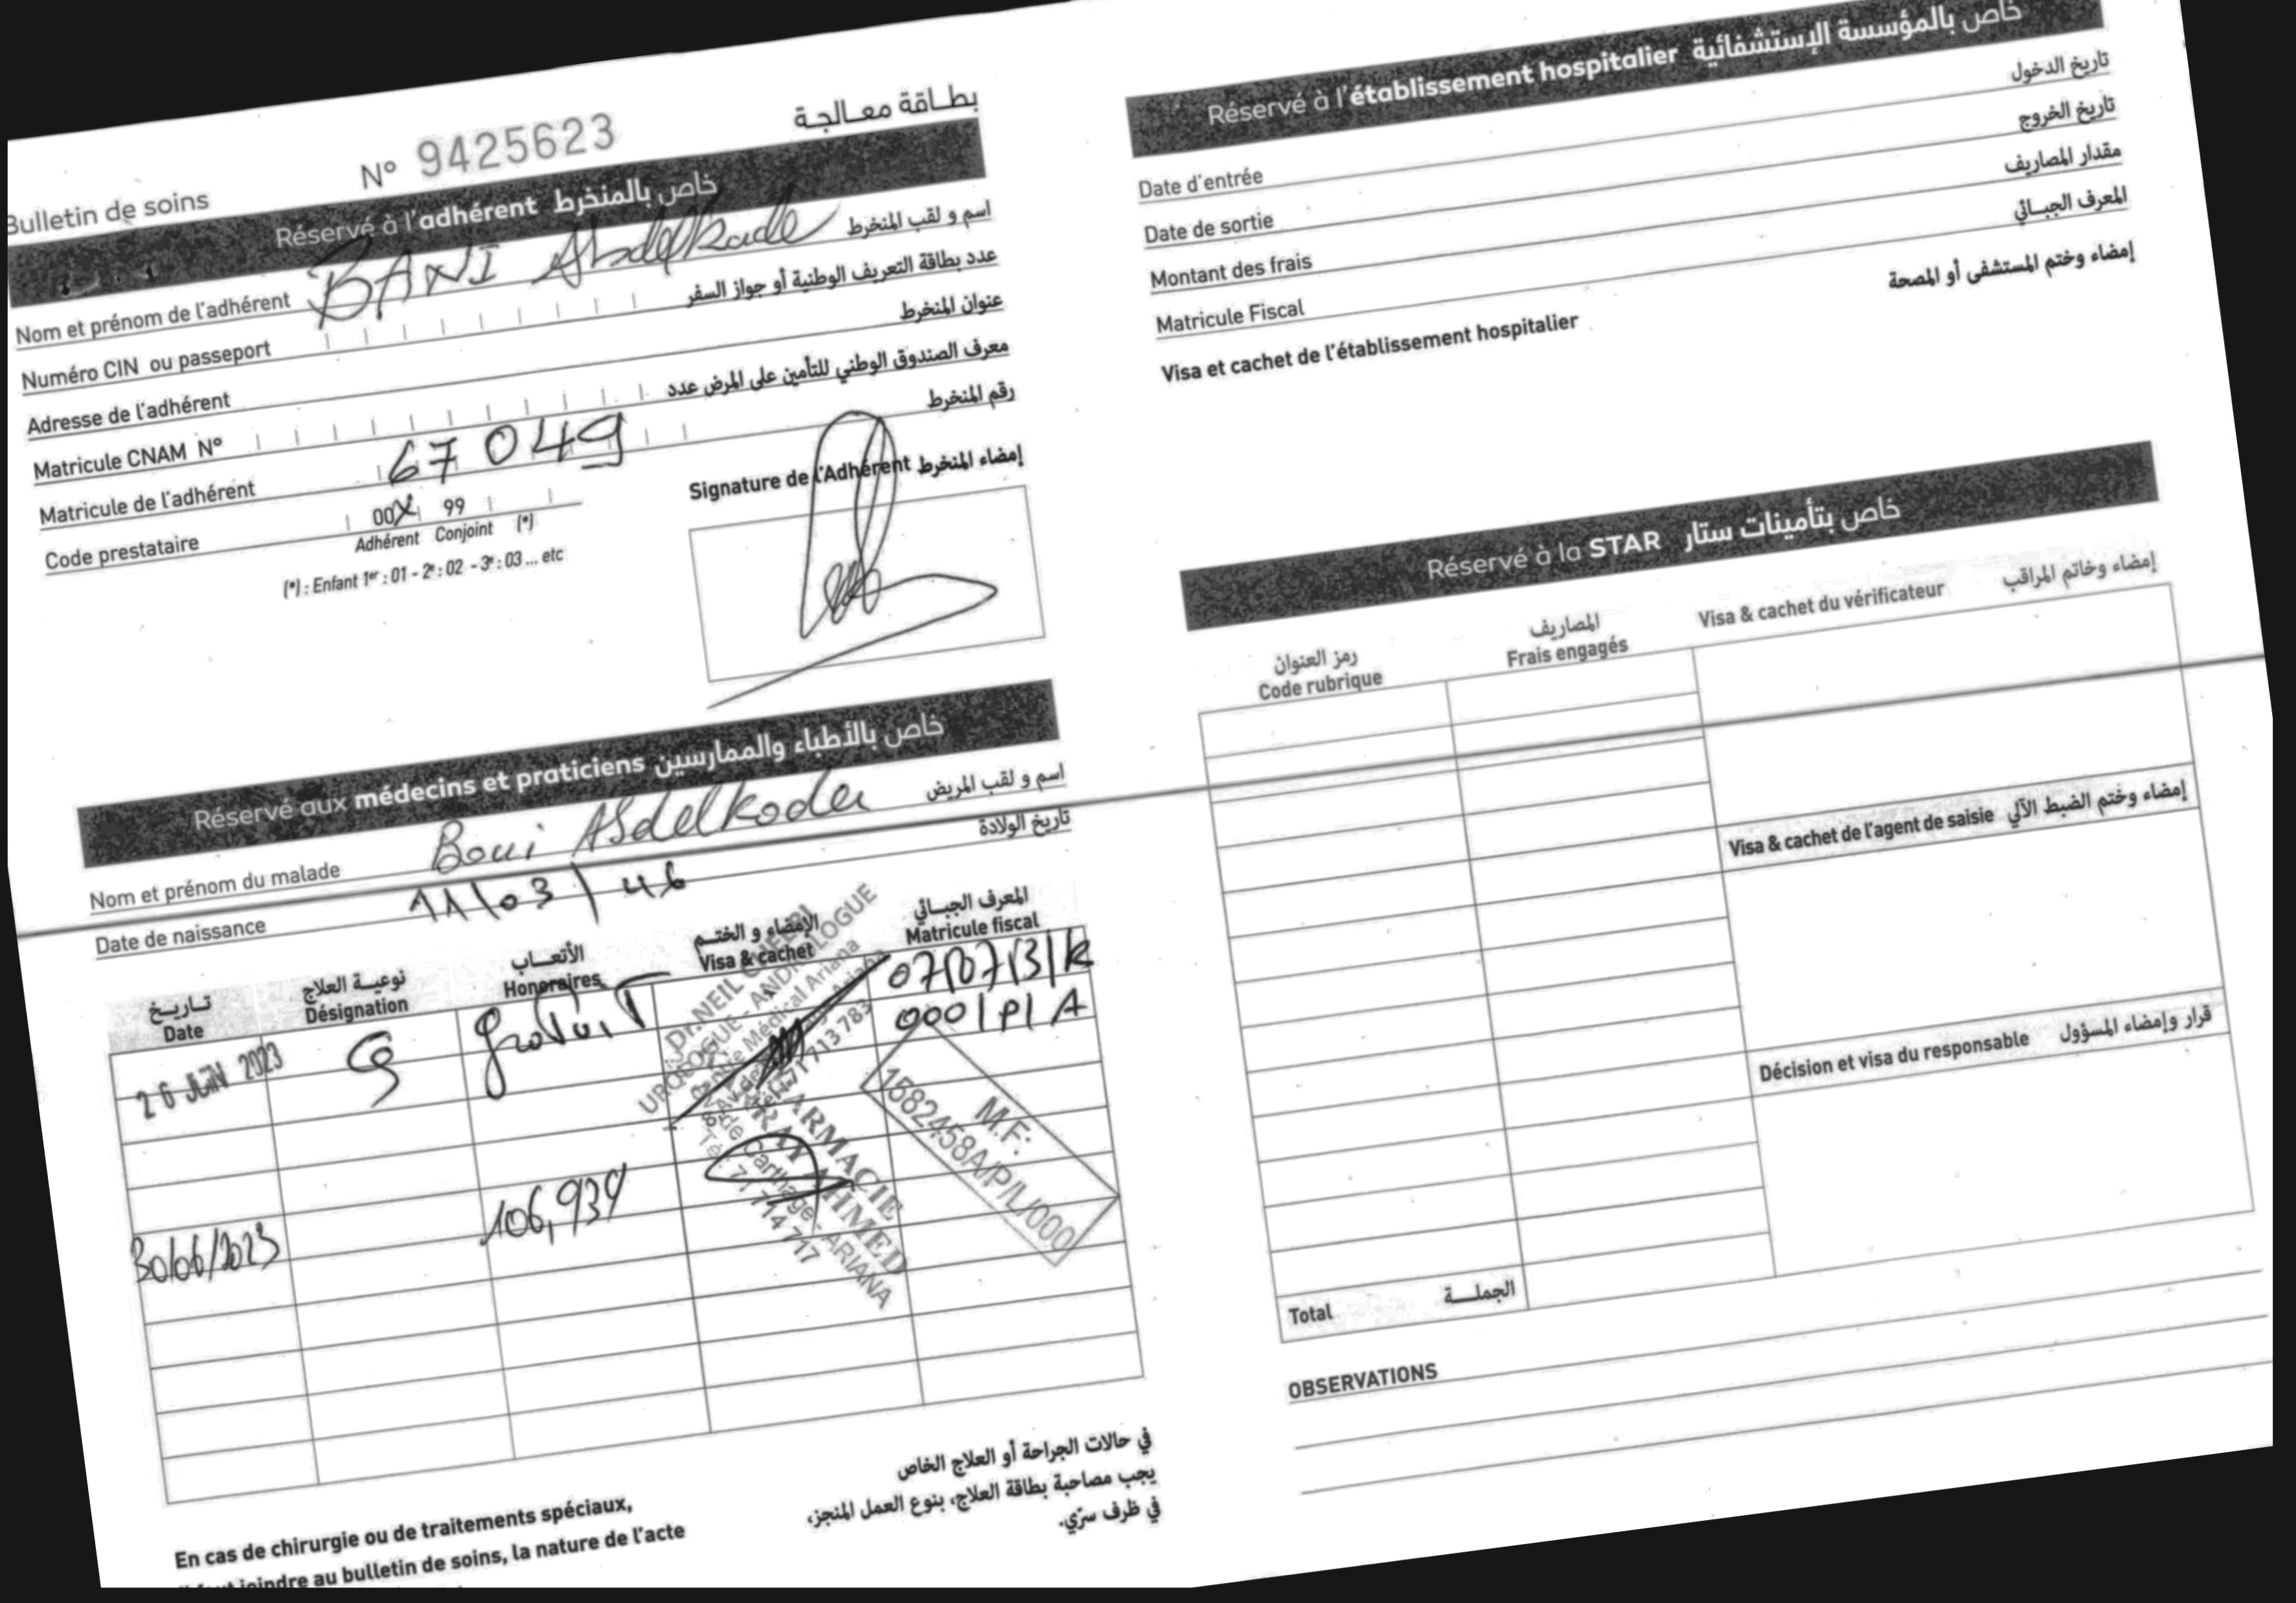 Bulletin de soins
N° 9425623
بطـاقة معـالجـة
Réservé à l'adhérent خاص بالمنخرط
Nom et prénom de l'adhérent BANI Abdelkade اسم و لقب المنخرط
Numéro CIN ou passeport عدد بطاقة التعريف الوطنية أو جواز السفر
Adresse de l'adhérent عنوان المنخرط
Matricule CNAM N° معرف الصندوق الوطني للتأمين على المرض عدد
Matricule de l'adhérent 67049 رقم المنخرط
Code prestataire 00 X 99
Adhérent Conjoint (*)
(*) : Enfant 1er : 01 - 2e : 02 - 3e : 03 ... etc
Signature de l'Adhérent إمضاء المنخرط
Réservé aux médecins et praticiens خاص بالأطباء والممارسين
Nom et prénom du malade Boui Abdelkader اسم و لقب المريض
Date de naissance 11/03/46 تاريخ الولادة
تـاريـخ نوعيـة العلاج الأتعـاب الإمضاء و الختـم المعرف الجبـائي
Date Désignation Honoraires Visa & cachet Matricule fiscal
26 JUIN 2023 gratuit 0001PIA
Dr. NEIL
UROLOGUE - ANDROLOGUE
Centre Médical Ariana
71 713 783
30/06/2023 106,939
PHARMACIE
RAY AHMED
de Carthage - ARIANA
Tél: 71 714 717
M.F:
1582458A/P/L/000
En cas de chirurgie ou de traitements spéciaux,
joindre au bulletin de soins, la nature de l'acte
في حالات الجراحة أو العلاج الخاص
يجب مصاحبة بطاقة العلاج، بنوع العمل المنجز،
في ظرف سرّي.
Réservé à l'établissement hospitalier خاص بالمؤسسة الإستشفائية
Date d'entrée تاريخ الدخول
Date de sortie تاريخ الخروج
Montant des frais مقدار المصاريف
Matricule Fiscal المعرف الجبـائي
Visa et cachet de l'établissement hospitalier إمضاء وختم المستشفى أو المصحة
Réservé à la STAR خاص بتأمينات ستار
رمز العنوان المصاريف
Code rubrique Frais engagés Visa & cachet du vérificateur إمضاء وخاتم المراقب
Visa & cachet de l'agent de saisie إمضاء وختم الضبط الآلي
Décision et visa du responsable قرار وإمضاء المسؤول
Total الجملـــة
OBSERVATIONS